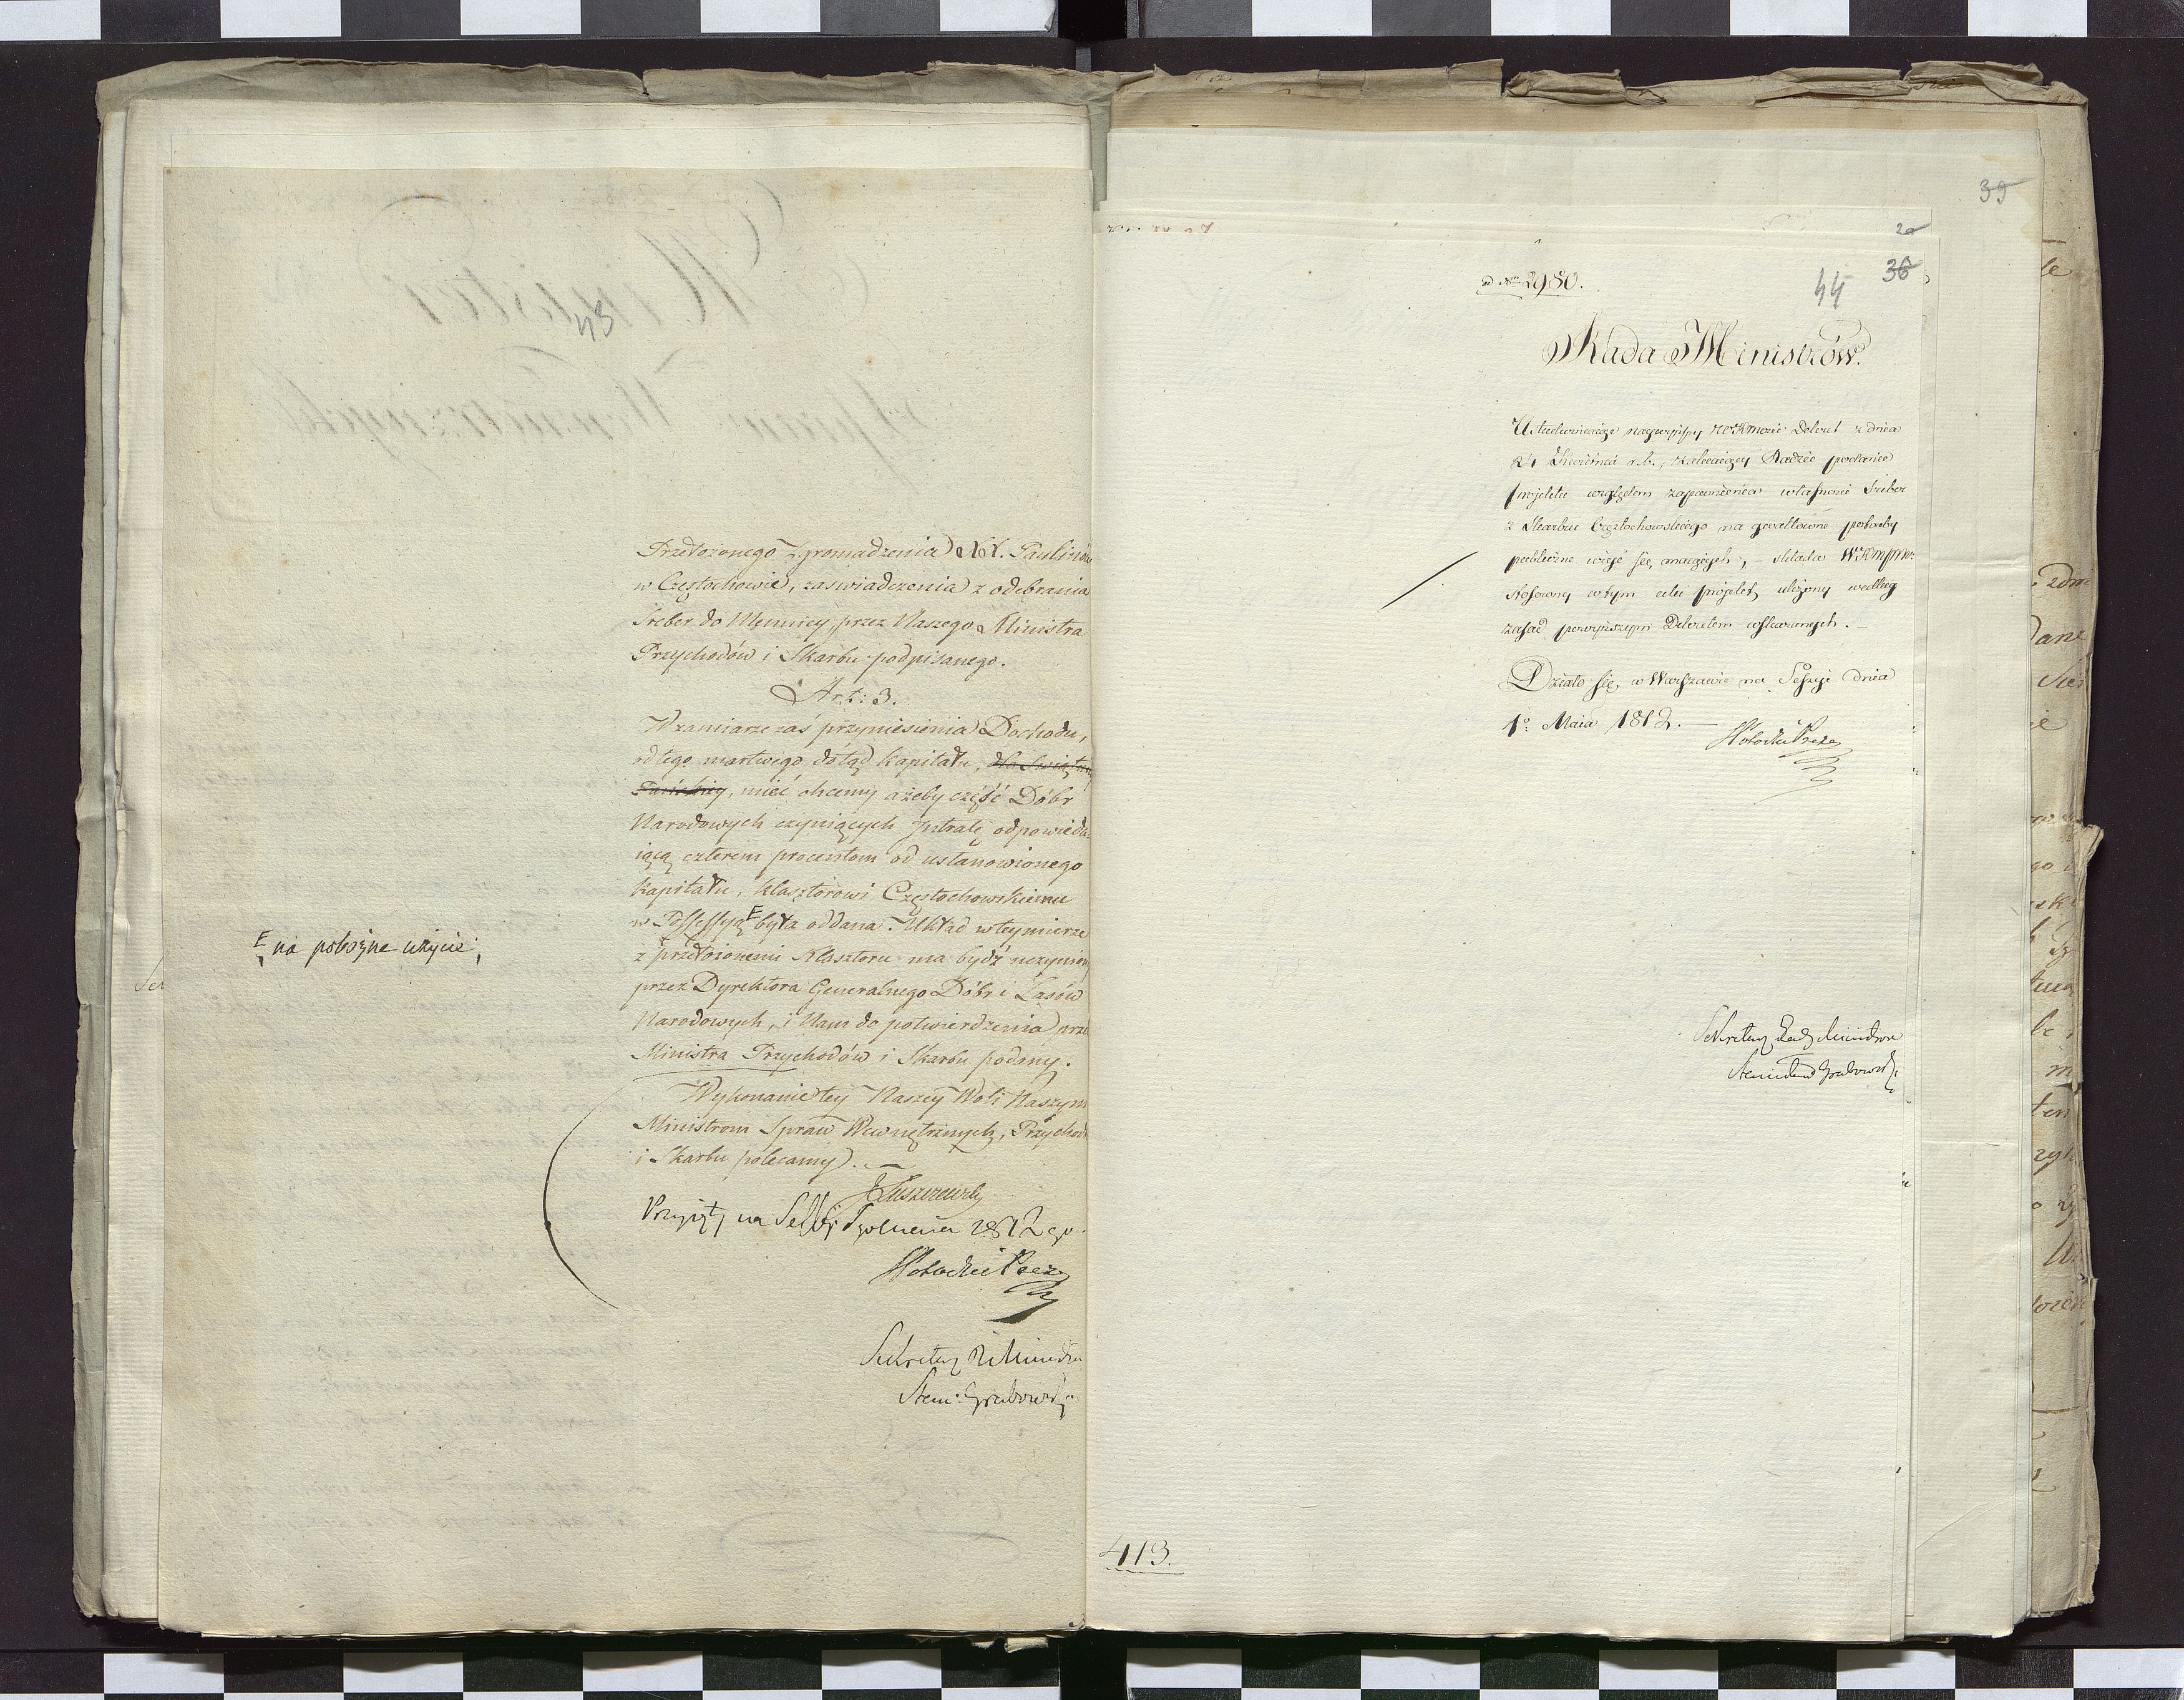 43
Przełożonego Zgromadzenia XX. Paulinów
w Częstochowie, zaświadczenia z odebrania
Sreber do Mennicy, przez Naszego Ministra
Przychodów i Skarbu podpisanego.
Art: 3.
W zamiarze zaś przyniesienia Dochodu,
od tego martwego dotąd kapitału, dla Swiątyni
Pańskiey, mieć chcemy ażeby część Dóbr
Narodowych czyniących Jntratę odpowieda-
iącą czterem procentom od ustanowionego
kapitału, klasztorowi Częstochowskiemu
w Possessyą była oddana. Układ w tey mierze
na pobożne użycie,
z przełożonemi Klasztoru ma bydź uczynion
przez Dyrektora Generalnego Dóbr i Lasów
Narodowych, i Nam do potwierdzenia prze
Ministra Przychodów i Skarbu podany.
Wykonanie tey Naszey Woli Naszym
Ministrom Spraw Wewnętrznych, Przychod
i Skarbu polecamy.
JŁuszczewski
Przyięty na Sessyi 1812 go
SPotocki Prez
Sekretarz R Ministrów
Stan: Grabowski
39
20
36
44
ad Nrum 2980.
Rada Ministrów.
Uskuteczniaiąc naywyższy WKMości Dekret z dnia
24 Kwietnia r.b., zalecaiący Radzie podanie
projektu względem zapewnienia własności Sreber
z Skarbcu Częstochowskiego na gwałtowne potrzeby
publiczne wziąść się maiących, składa WKMPMu
stosowny w tym celu projekt, ułożony według
zasad powyższym Dekretem wskazanych.
Działo się w Warszawie na Sessyi dnia
1o Maia 1812.
SPotocki Prez
Sekretarz Rady Ministrów
Stanisław Grabowski
413.